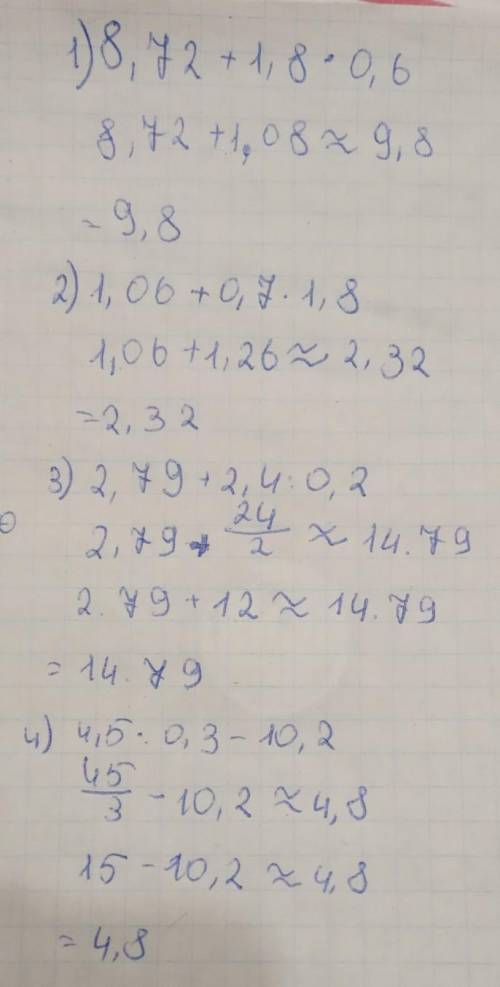 1) 8,72 + 1,8 · 0,6
8,72 + 1,08 ≈ 9,8
= 9,8
2) 1,06 + 0,7 · 1,8
1,06 + 1,26 ≈ 2,32
= 2,32
3) 2,79 + 2,4 : 0,2
2,79 + 24/2 ≈ 14.79
2.79 + 12 ≈ 14.79
= 14.79
4) 4,5 : 0,3 - 10,2
45/3 - 10,2 ≈ 4,8
15 - 10,2 ≈ 4,8
= 4,8